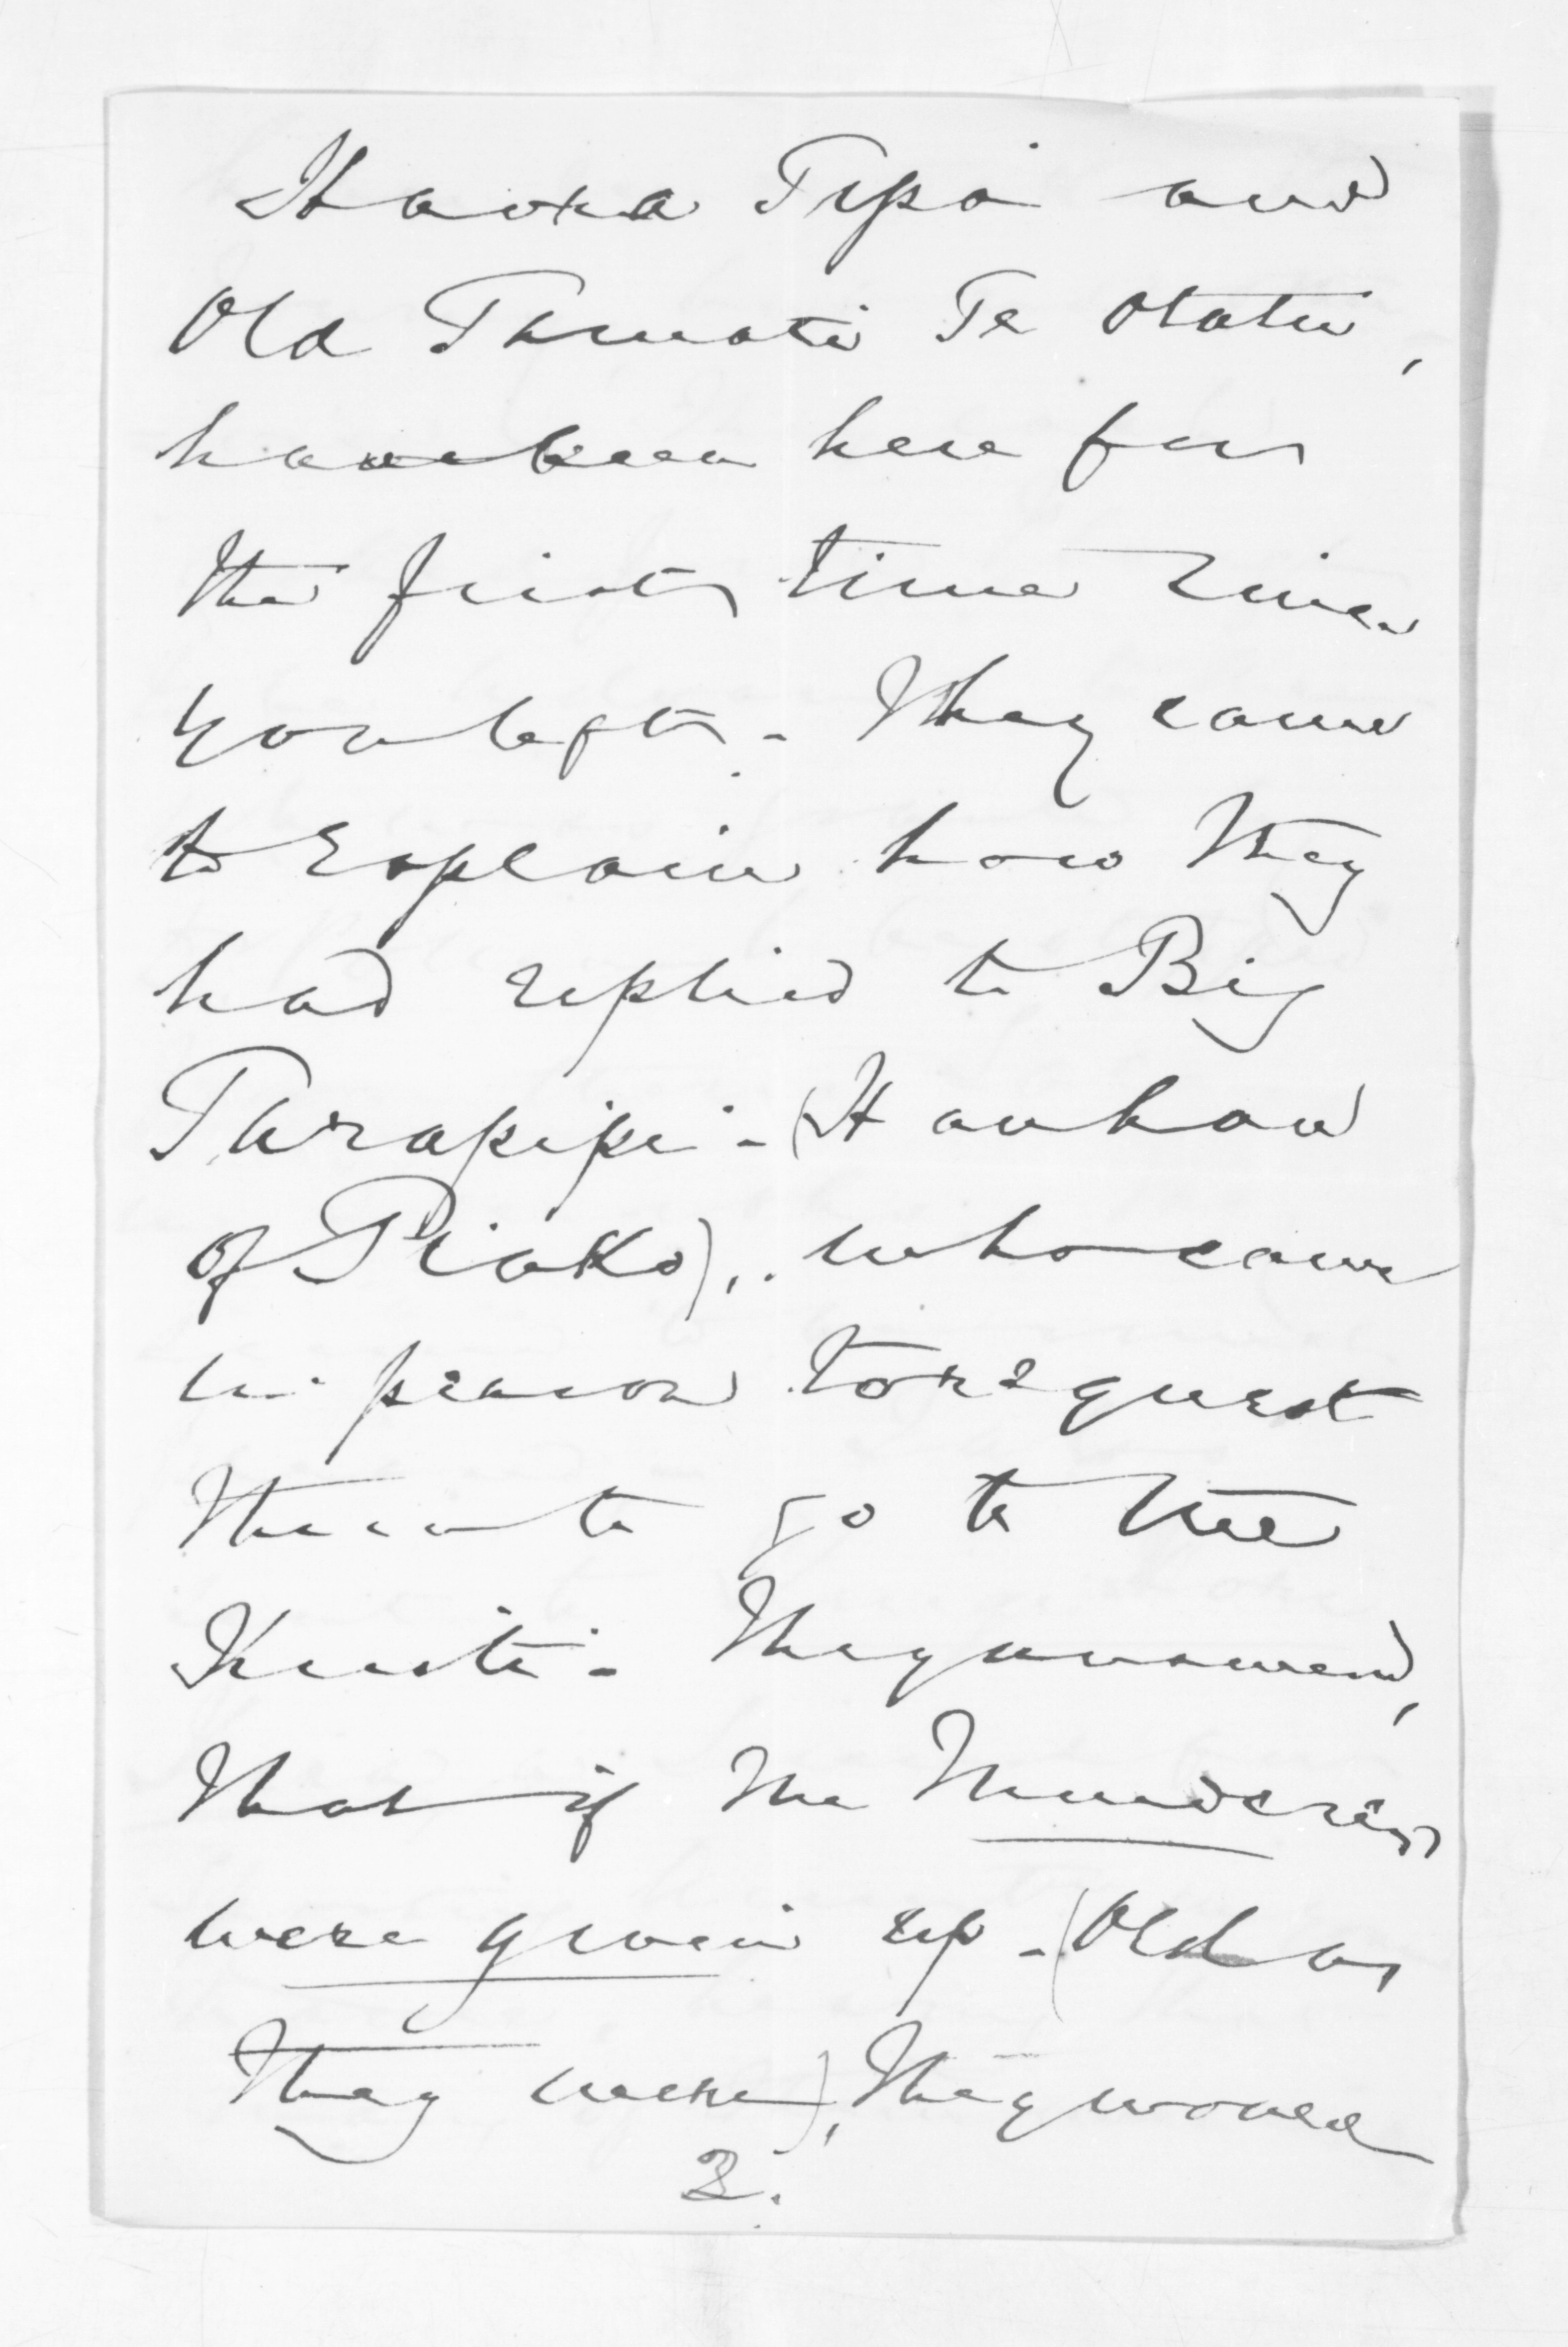 Haora Tipa and
Old Tamati Te Otatu,
have been here for
the first time since
you left. - They came
to explain how they
had replied to Big
Tarapipi - (Hauhau
of Piako), who came
in person to request
them to go to the
Kuiti - They answered,
that if the Murderers
were given up - (Old as
they were), they would
3.